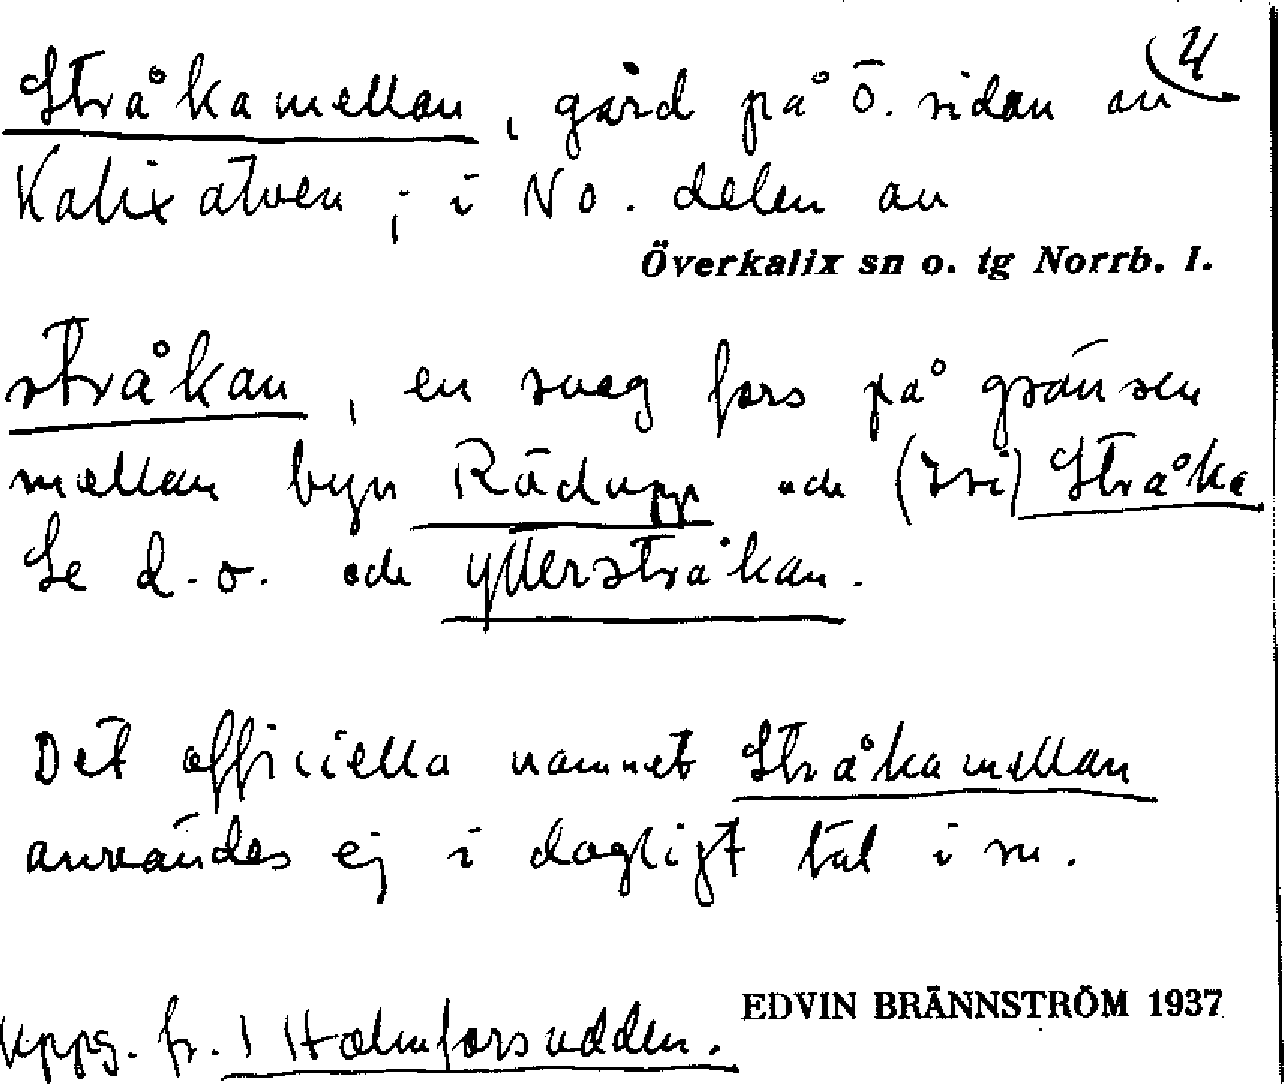 4
Stråkamellan, gård på ö. sidan av
Kalixälven; i NO. delen av
Överkalix sn o. tg Norrb. I.
stråkan, en svag fors på gränsen
mellan byn Rödupp och Stråka
Se d.o. och ytterstråkan.
Det officiella namnet Stråkamellan
användes ej i dagligt tal i sn.
EDVIN BRÄNNSTRÖM 1937
Uppg. fr. 1 Holmforsudden.